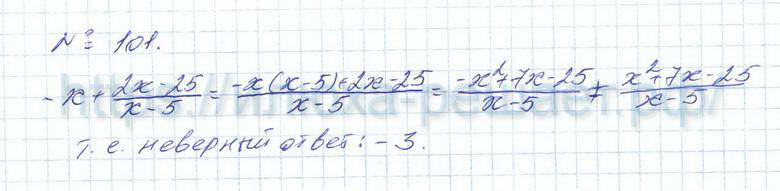 № 101.
- x + \frac{2x-25}{x-5} = \frac{-x(x-5)+2x-25}{x-5} = \frac{-x^2+7x-25}{x-5} ≠ \frac{x^2+7x-25}{x-5}
т. е. неверный ответ: -3.